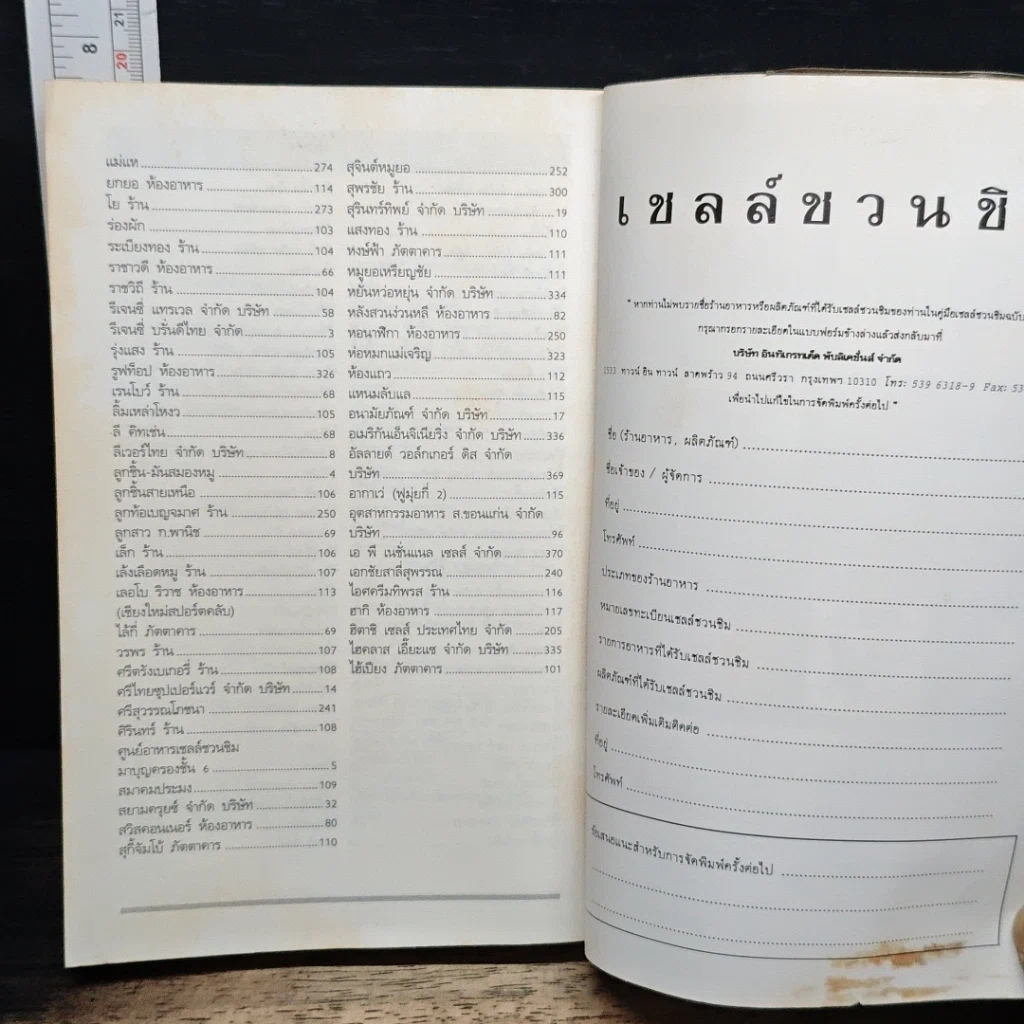 8
21
20
แม่แห ... 274
ยกยอ ห้องอาหาร ... 114
โย ร้าน ... 273
ร่องผัก ... 103
ระเบียงทอง ร้าน ... 104
ราชาวดี ห้องอาหาร ... 66
ราชวิถี ร้าน ... 104
รีเจนซี่ แทรเวล จำกัด บริษัท ... 58
รีเจนซี่ บรั่นดีไทย จำกัด ... 3
รุ่งแสง ร้าน ... 105
รูฟท็อป ห้องอาหาร ... 326
เรนโบว์ ร้าน ... 68
ลิ้มเหล่าโหงว ... 105
ลี คิทเช่น ... 68
ลีเวอร์ไทย จำกัด บริษัท ... 8
ลูกชิ้น-มันสมองหมู ... 4
ลูกชิ้นสายเหนือ ... 106
ลูกท้อเบญจมาศ ร้าน ... 250
ลูกสาว ก.พานิช ... 69
เล็ก ร้าน ... 106
เล้งเลือดหมู ร้าน ... 107
เลอโบ ริวาช ห้องอาหาร ... 113
(เชียงใหม่สปอร์ตคลับ)
ไล้กี่ ภัตตาคาร ... 69
วรพร ร้าน ... 107
ศรีตรังเบเกอรี่ ร้าน ... 108
ศรีไทยซุปเปอร์แวร์ จำกัด บริษัท ... 14
ศรีสุวรรณโภชนา ... 241
ศิรินทร์ ร้าน ... 108
ศูนย์อาหารเชลล์ชวนชิม
มาบุญครองชั้น 6 ... 5
สมาคมประมง ... 109
สยามครุยซ์ จำกัด บริษัท ... 32
สวิสคอนเนอร์ ห้องอาหาร ... 80
สุกี้จัมโบ้ ภัตตาคาร ... 110
สุจินต์หมูยอ ... 252
สุพรชัย ร้าน ... 300
สุรินทร์ทิพย์ จำกัด บริษัท ... 19
แสงทอง ร้าน ... 110
หงษ์ฟ้า ภัตตาคาร ... 111
หมูยอเหรียญชัย ... 111
หยั่นหว่อหยุ่น จำกัด บริษัท ... 334
หลังสวนง่วนหลี ห้องอาหาร ... 82
หอนาฬิกา ห้องอาหาร ... 250
ห่อหมกแม่เจริญ ... 323
ห้องแถว ... 112
แหนมลับแล ... 115
อนามัยภัณฑ์ จำกัด บริษัท ... 17
อเมริกันเอ็นจิเนียริ่ง จำกัด บริษัท ... 336
อัลลายด์ วอล์กเกอร์ ดิส จำกัด
บริษัท ... 369
อากาเว่ (ฟูมุ่ยกี่ 2) ... 115
อุตสาหกรรมอาหาร ส.ขอนแก่น จำกัด
บริษัท ... 96
เอ พี เนชั่นแนล เซลส์ จำกัด ... 370
เอกชัยสาลี่สุพรรณ ... 240
ไอศครีมทิพรส ร้าน ... 116
ฮากิ ห้องอาหาร ... 117
ฮิตาชิ เซลส์ ประเทศไทย จำกัด ... 205
ไฮคลาส เอี๊ยะแซ จำกัด บริษัท ... 335
ไฮ้เปียง ภัตตาคาร ... 101
เชลล์ชวนชิ
" หากท่านไม่พบรายชื่อร้านอาหารหรือผลิตภัณฑ์ที่ได้รับเชลล์ชวนชิมของท่านในคู่มือเชลล์ชวนชิมฉบับ
กรุณากรอกรายละเอียดในแบบฟอร์มข้างล่างแล้วส่งกลับมาที่
บริษัท อินทิเกรทเต็ด พับลิเคชั่นส์ จำกัด
1533 ทาวน์ อิน ทาวน์ ลาดพร้าว 94 ถนนศรีวรา กรุงเทพฯ 10310 โทร: 539 6318-9 Fax: 53
เพื่อนำไปแก้ไขในการจัดพิมพ์ครั้งต่อไป "
ชื่อ (ร้านอาหาร, ผลิตภัณฑ์)
ชื่อเจ้าของ / ผู้จัดการ
ที่อยู่
โทรศัพท์
ประเภทของร้านอาหาร
หมายเลขทะเบียนเชลล์ชวนชิม
รายการอาหารที่ได้รับเชลล์ชวนชิม
ผลิตภัณฑ์ที่ได้รับเชลล์ชวนชิม
รายละเอียดเพิ่มเติมติดต่อ
ที่อยู่
โทรศัพท์
ข้อเสนอแนะสำหรับการจัดพิมพ์ครั้งต่อไป